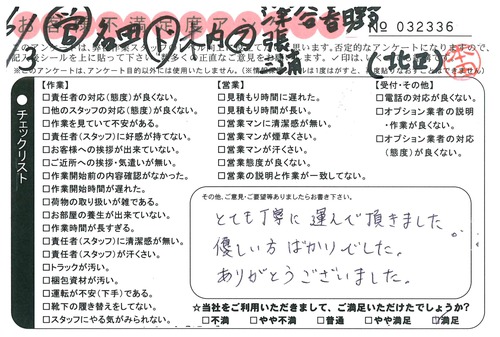 No 032336
チェックリスト
【作業】
□責任者の対応(態度)が良くない。
□他のスタッフの対応(態度)が良くない。
□作業を見ていて不安がある。
□責任者(スタッフ)に好感が持てない。
□お客様への挨拶が出来ていない。
□ご近所への挨拶・気遣いが無い。
□作業開始前の内容確認がなかった。
□作業開始時間が遅れた。
□荷物の取り扱いが雑である。
□お部屋の養生が出来ていない。
□作業時間が長すぎる。
□責任者(スタッフ)に清潔感が無い。
□責任者(スタッフ)が汗くさい。
□トラックが汚い。
□梱包資材が汚い。
□運転が不安(下手)である。
□靴下の履き替えをしてない。
□スタッフにやる気がみられない。
【営業】
□見積もり時間に遅れた。
□見積もり時間が長い。
□営業マンに清潔感が無い。
□営業マンが煙草くさい。
□営業マンが汗くさい。
□営業態度が良くない。
□営業の説明と作業が一致してない。
【受付・その他】
□電話の対応が良くない。
□オプション業者の説明
・作業が良くない。
□オプション業者の対応
(態度)が良くない。
その他、ご意見・ご要望等ありましたらお書き下さい。
とても丁寧に運んで頂きました
優しい方ばかりでした。
ありがとうございました。
☆当社をご利用いただきまして、ご満足いただけたでしょうか?
□不満 □やや不満 □普通 □やや満足 □満足